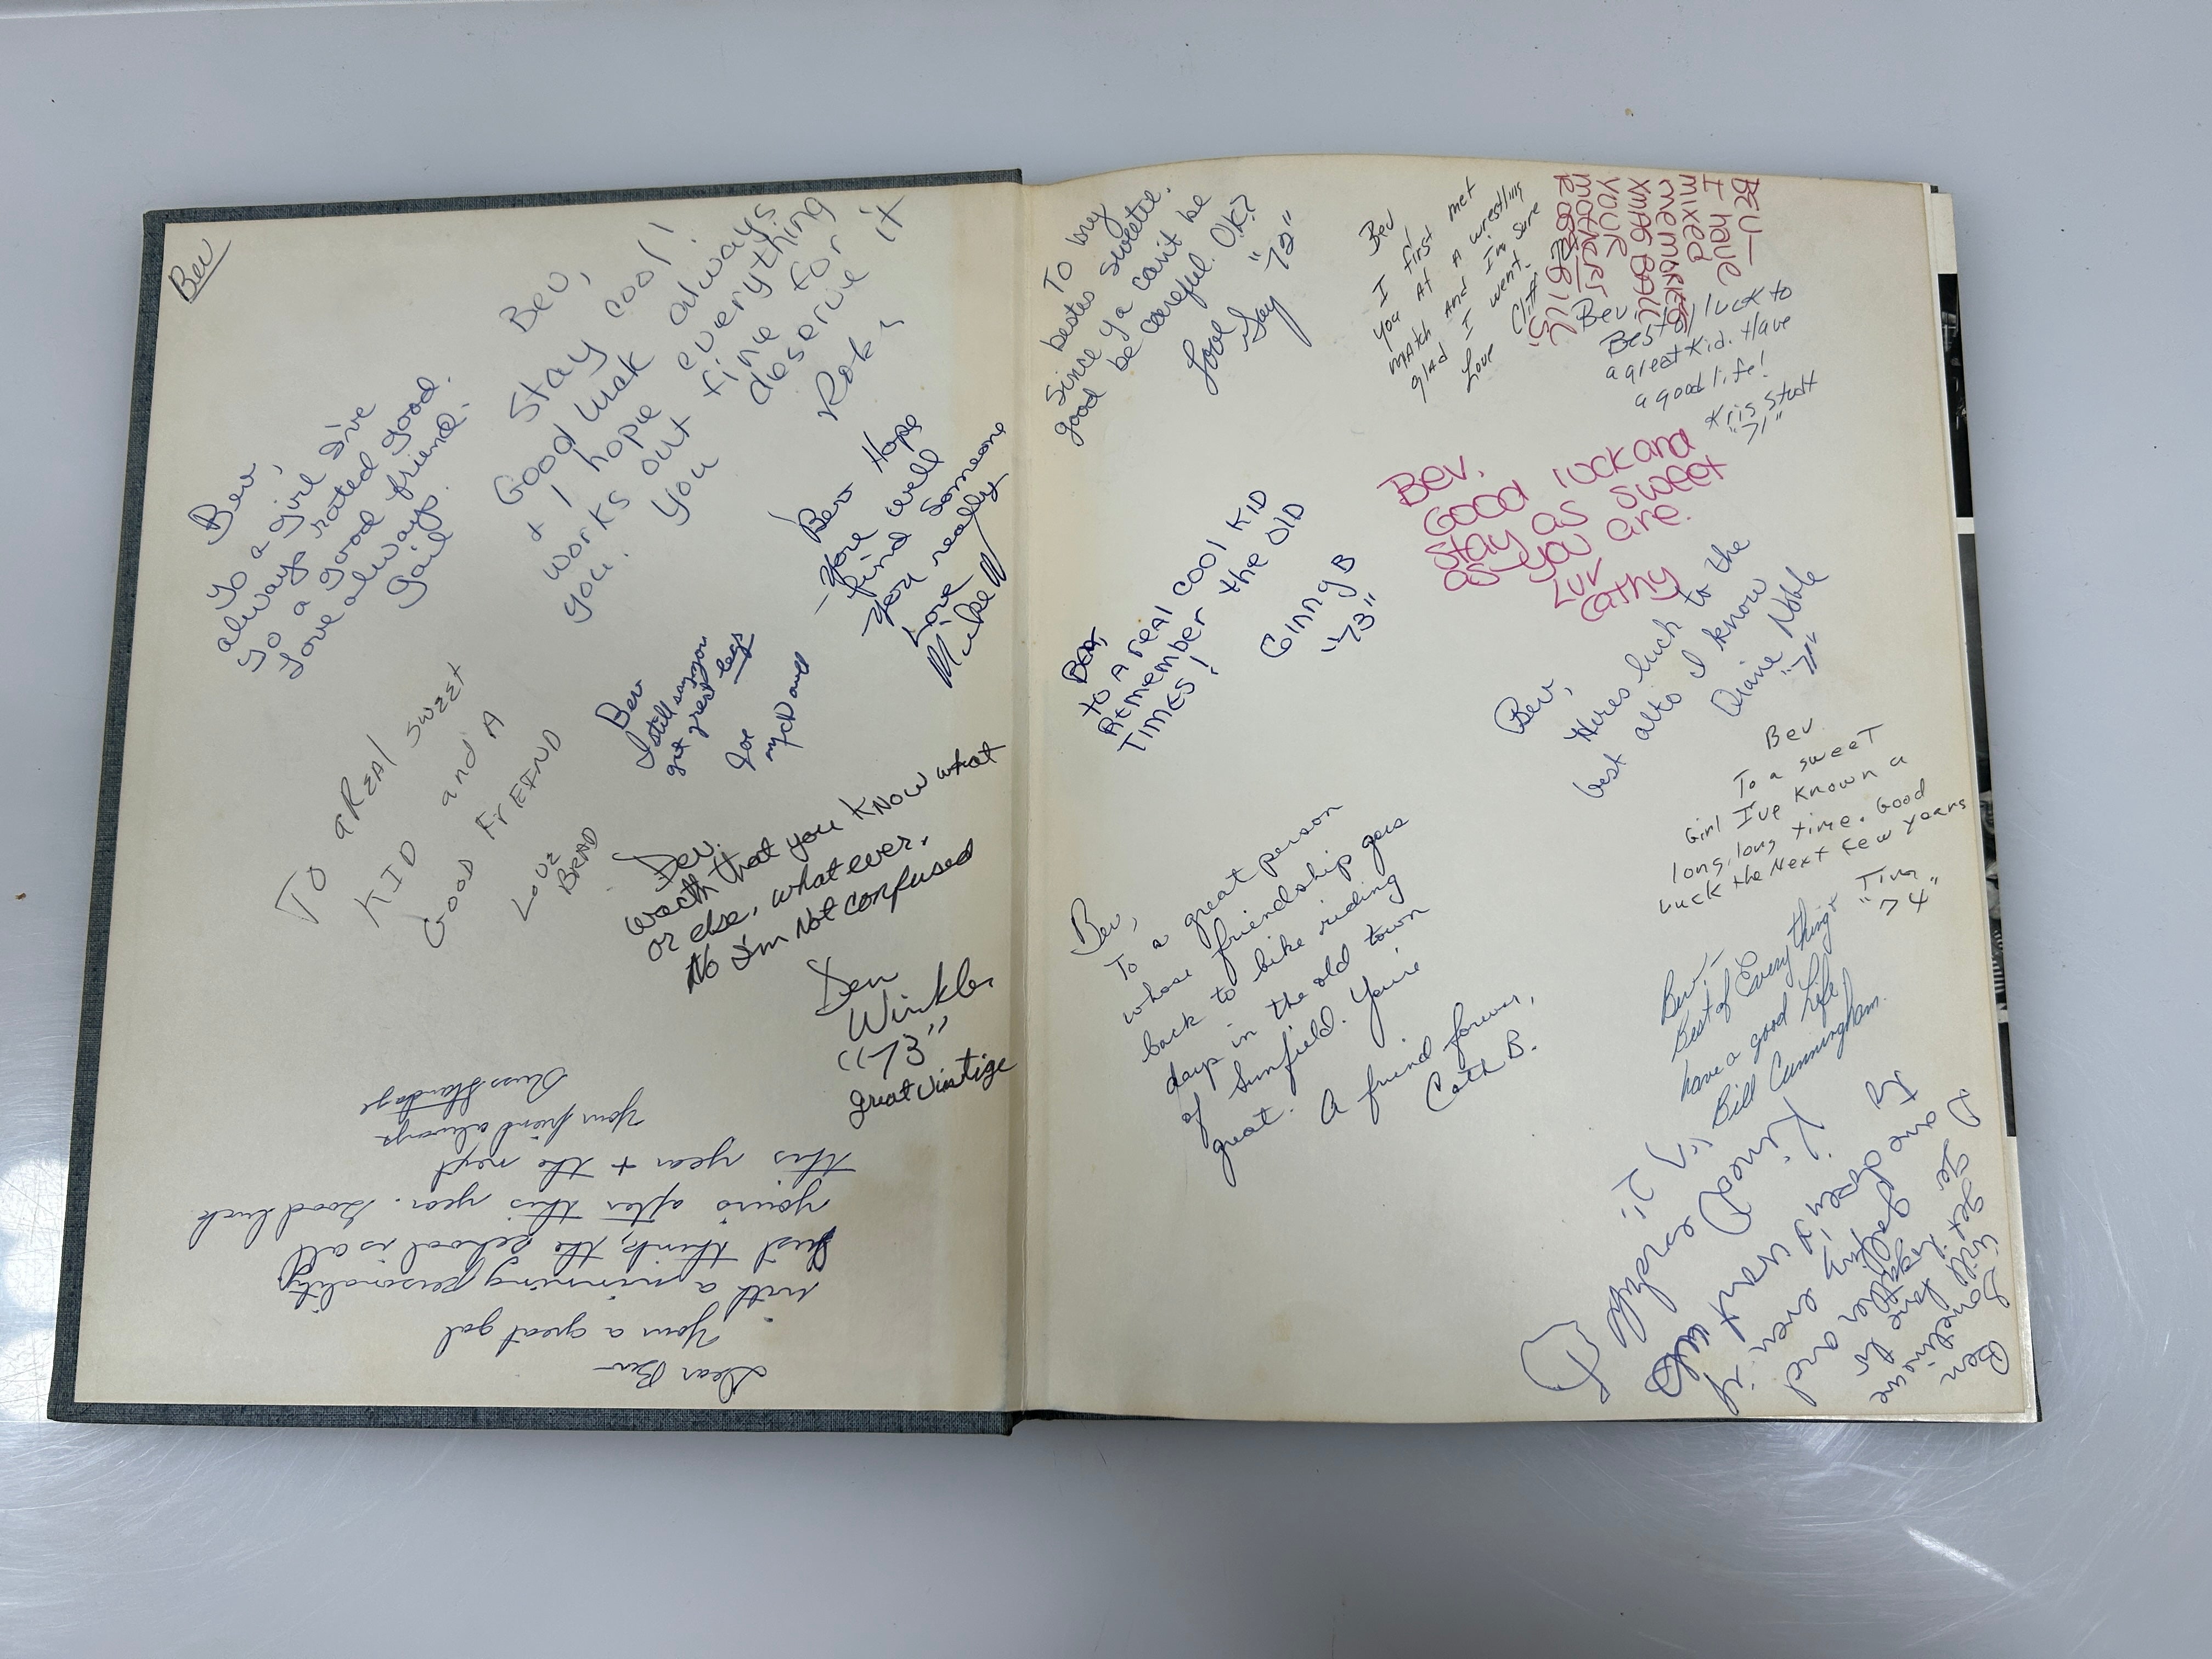 Bev
Bev,
To a girl I've
always rated good.
To a good friend.
Love always,
Gail
Bev,
Stay cool!
Good luck always
+ I hope everything
works out fine for
you. You deserve it
Robin
Bev Hope
you well
find someone
you really
Love
Mike
Bev
I still say you
got great legs
Joe
To a REAl SWEET
KID and A
GOOD FrEIND
LOVE
BRAD
Bev.
that you know what
or else, what ever.
No I'm not confused
Den
Winkler
"73"
great vintige
Dear Bev—
Your a great gal
with a winning personality.
Just think, the school is all
yours after this year. Good luck
this year + the next
Your friend always
Russ Hardage
To my
bestes sweetie.
Since ya can't be
good be careful. O.K?
Love
Gay
"72"
Bev
I first met
you At A wrestling
match And I'm sure
glad I went.
Love Cliff
BEV—
I have
mixed
memories
XMAS BALL
YOUR
Bev
Best of luck to
a great kid. Have
a good life!
Kris Stutt
"71"
Bev.
Good luck and
stay as sweet
as you are.
Luv
Cathy
BEV,
to A REAL COOl KID
REMEMBER the OlD
TIMES!
GINNY B
"73"
Bev,
Heres luck to the
best alto I know
Diane Noble
"71"
Bev
To a sweet
Girl I've known a
long, long time. Good
Luck the Next few years
Tim
"74"
Bev,
To a great person
whose friendship goes
back to bike riding
days in the old town
of Sunfield. You're
great. A friend forever,
Cath B.
Bev,
Best of Everything +
have a good Life
Bill Cunningham.
Ben